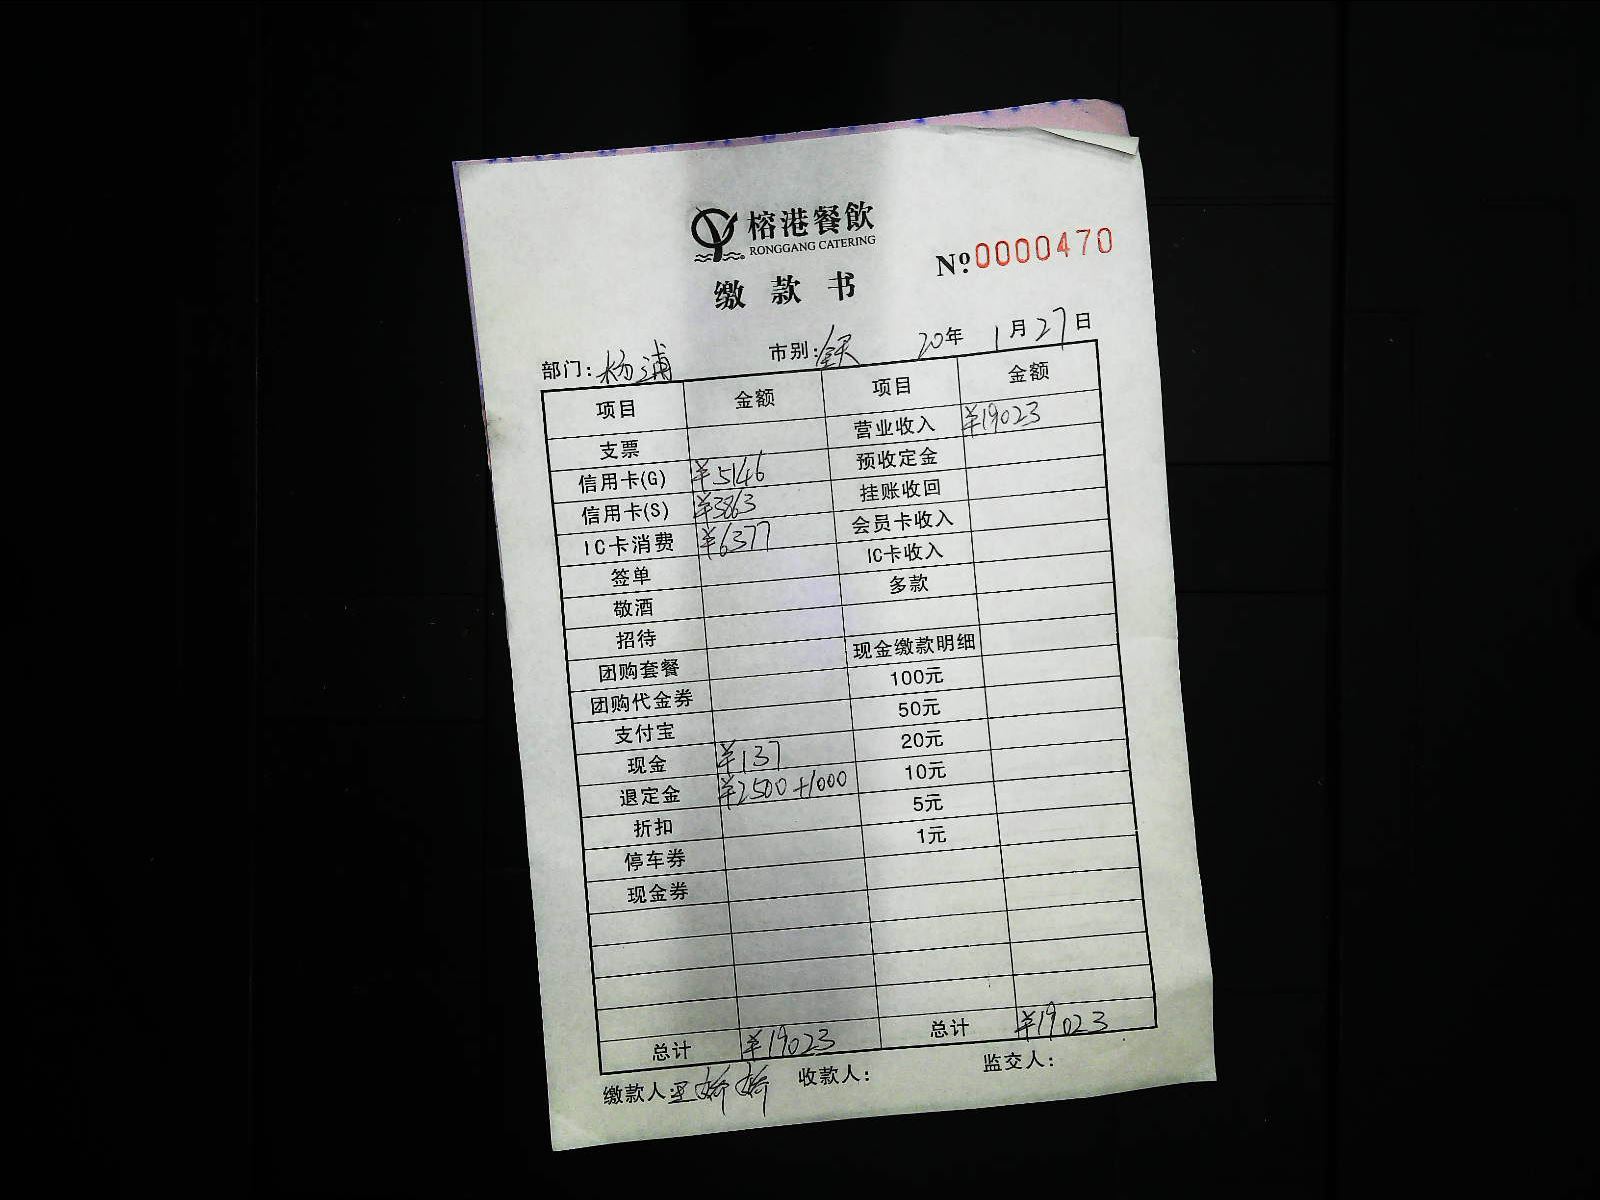 榕港餐飲
RONGGANG CATERING
№ 0000470
缴款书
部门: 杨浦 市别: 全天 20年 1月27日
项目 金额 项目 金额
支票 营业收入 ¥19023
信用卡(G) ¥5146 预收定金
信用卡(S) ¥3863 挂账收回
IC卡消费 ¥6377 会员卡收入
签单 IC卡收入
敬酒 多款
招待
团购套餐 现金缴款明细
团购代金券 100元
支付宝 50元
现金 ¥137 20元
退定金 ¥2500+1000 10元
折扣 5元
停车券 1元
现金券
总计 ¥19023 总计 ¥19023
缴款人: 娇娇 收款人: 监交人: